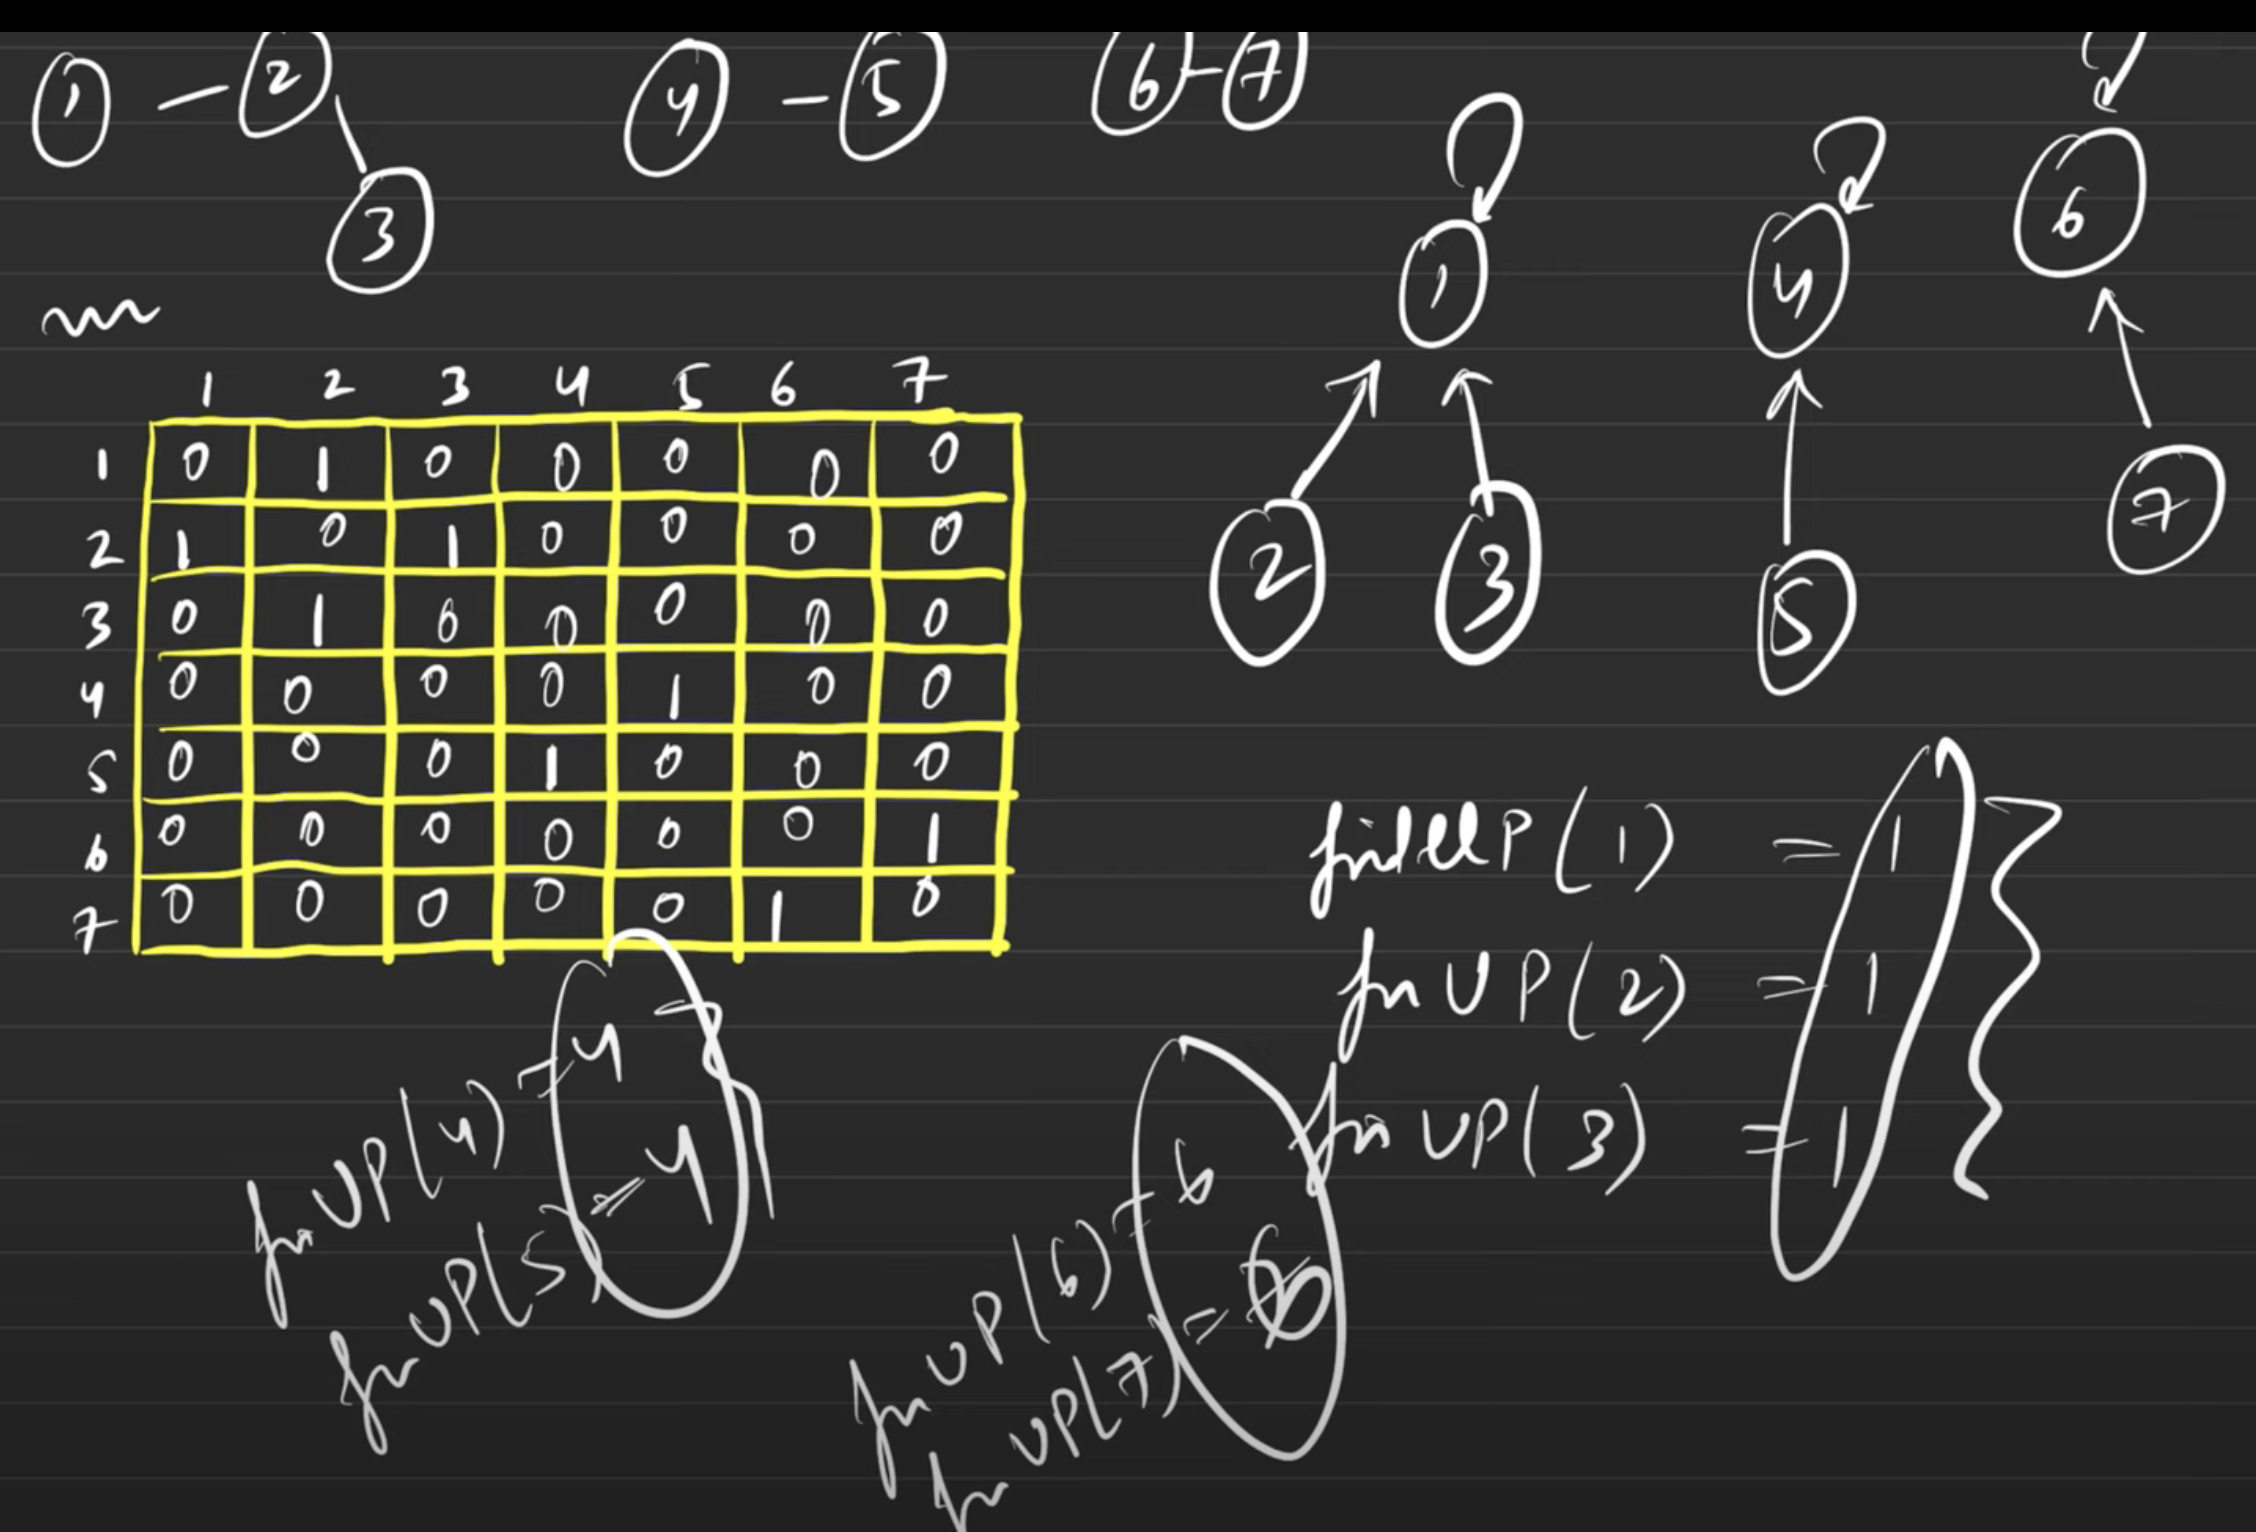 1 - 2 4 - 5 6 - 7
3
1 4 6
2 3 5 7
1 2 3 4 5 6 7
1 0 1 0 0 0 0 0
2 1 0 1 0 0 0 0
3 0 1 0 0 0 0 0
4 0 0 0 0 1 0 0
5 0 0 0 1 0 0 0
6 0 0 0 0 0 0 1
7 0 0 0 0 0 1 0
findUP(1) = 1
fnUP(2) = 1
fnUP(3) = 1
fnUP(4) = 4
fnUP(5) = 4
fnUP(6) = 6
fnUP(7) = 6